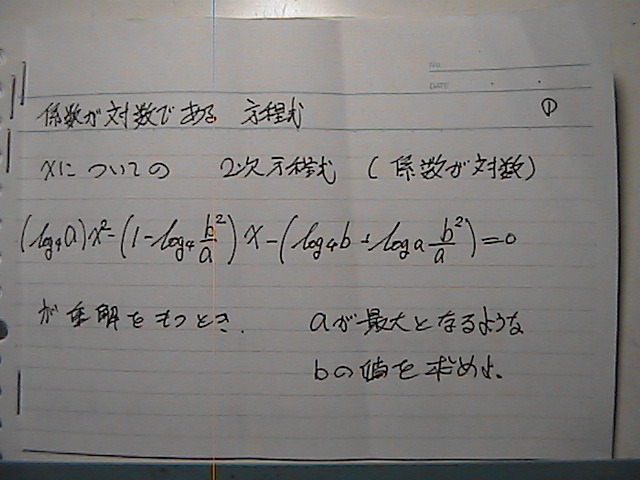 NO.
DATE
係数が対数である 方程式 ①
xについての 2次方程式 (係数が対数)
(log₄a)x²-(1-log₄ b²/a)x-(log₄b+logₐ b²/a)=0
が重解をもつとき. aが最大となるような
bの値を求めよ.